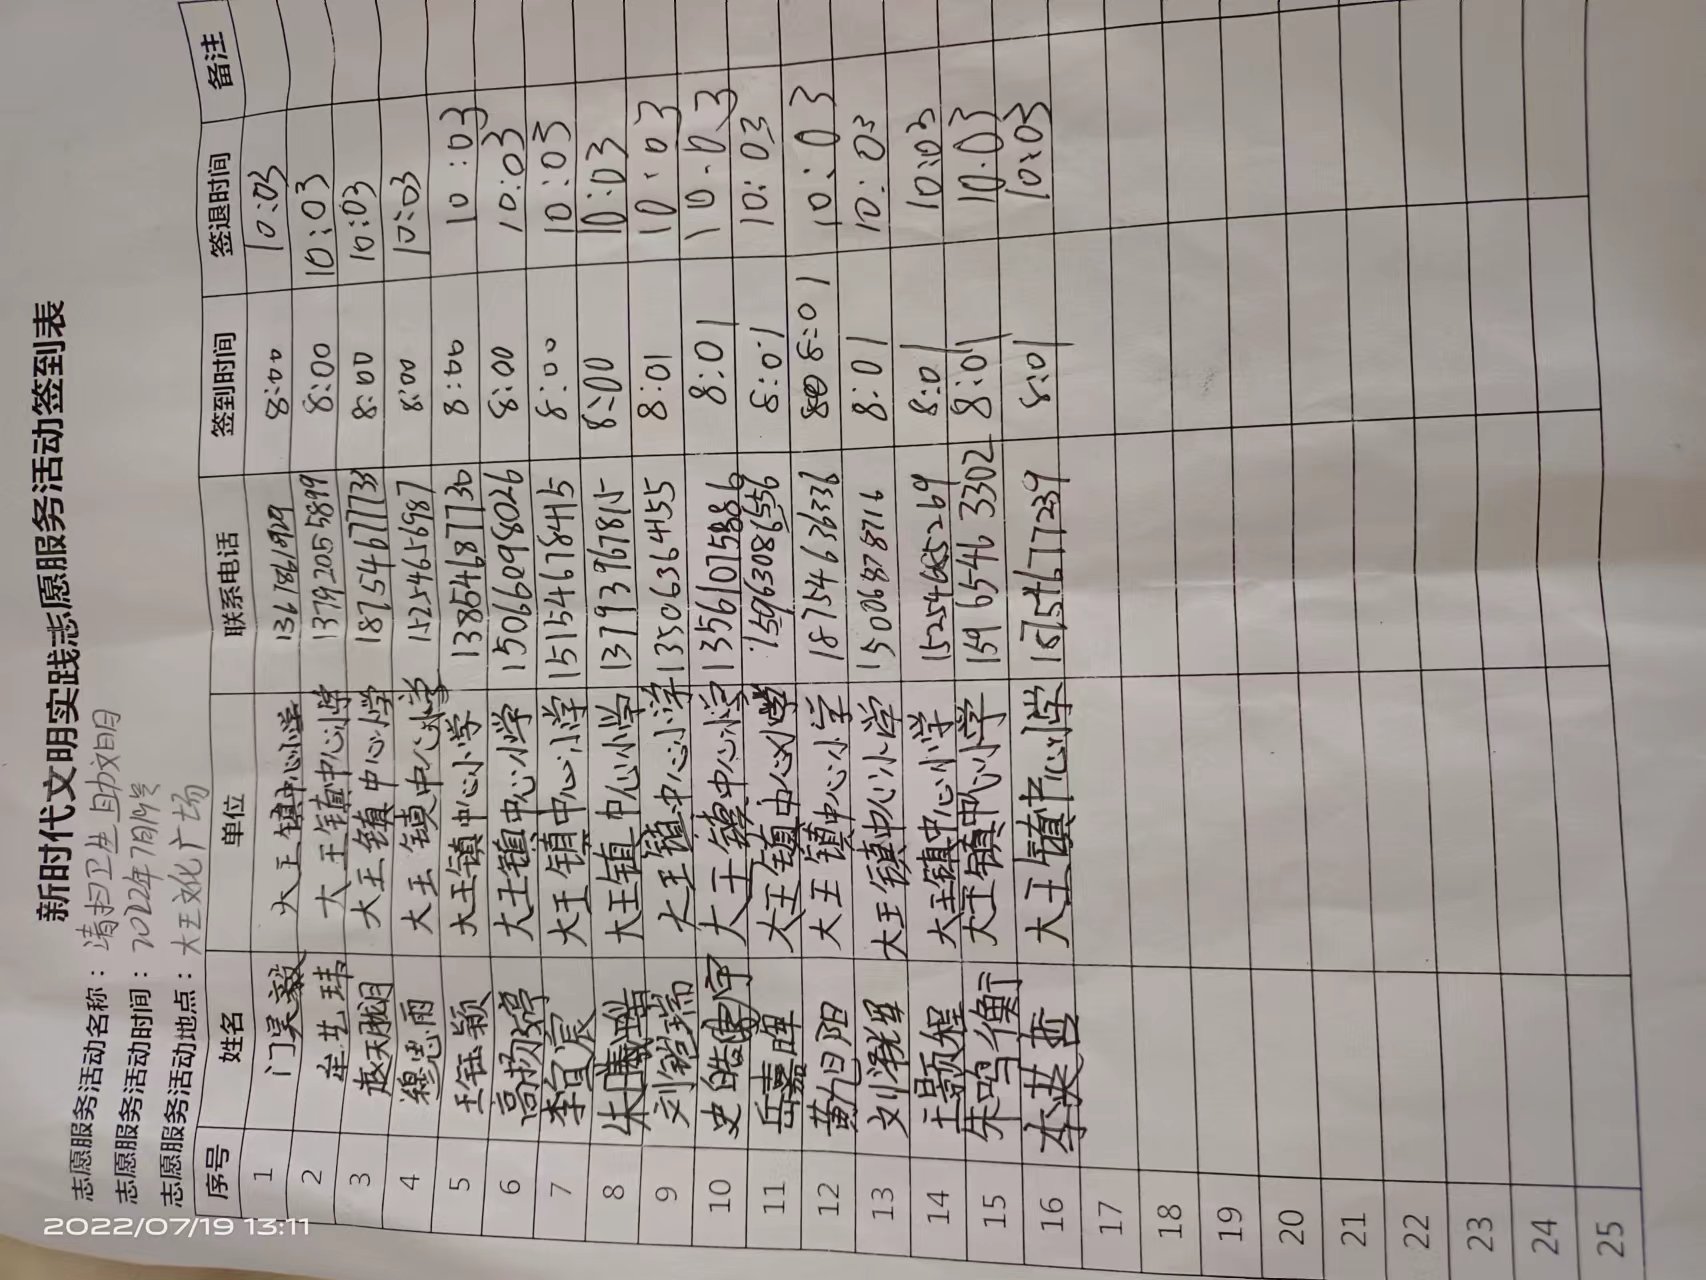 新时代文明实践志愿服务活动签到表
志愿服务活动名称：清扫卫生 自助文明
志愿服务活动时间：2022年7月19号
志愿服务活动地点：大王文化广场
序号 姓名 单位 联系电话 签到时间 签退时间 备注
1 门昊毅 大王镇中心小学 8:00 10:03
2 牟艺玮 大王镇中心小学 13792055899 8:00 10:03
3 赵天胭 大王镇中心小学 18754677733 8:00 10:03
4 穆思雨 大王镇中心小学 15254656987 8:00 10:03
5 王钰颖 大王镇中心小学 13854687730 8:00 10:03
6 高扬婷 大王镇中心小学 15066098026 8:00 10:03
7 李宜宸 大王镇中心小学 15154678415 8:00 10:03
8 朱曦瑶 大王镇中心小学 13793967815 8:00 10:03
9 刘铠瑞 大王镇中心小学 13506364455 8:01 10:03
10 史皓宇 大王镇中心小学 13561075886 8:01 10.03
11 岳嘉晖 大王镇中心小学 15963086556 8:01 10:03
12 黄旭阳 大王镇中心小学 18754636336 8:01 10:03
13 刘泽辉 大王镇中心小学 15006878716 8:01 10:03
14 王颢程 大王镇中心小学 15254685269 8:01 10:03
15 朱鸣衡 大王镇中心小学 15965463302 8:01 10.03
16 李英哲 大王镇中心小学 18754677239 8:01 10:03
17
18
19
20
21
22
23
24
25
2022/07/19 13:11